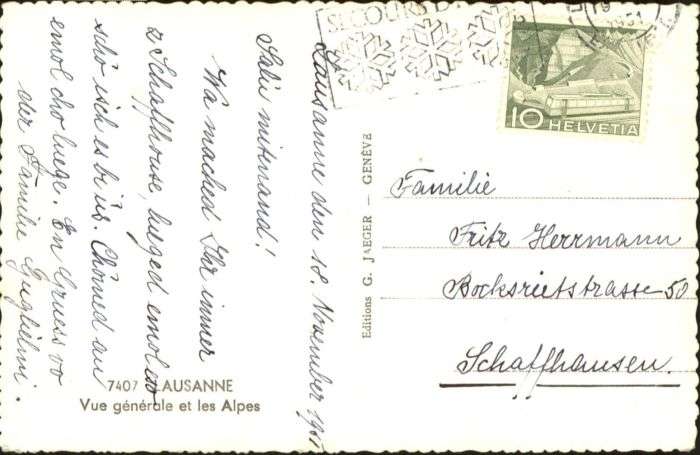 Lausanne den 18. November 1951
Salü mitenand!
Wa mached Ihr immer
z Schaffhuuse, lueged emol wo
schö isch es bi üs. Chömed au
emol cho luege. En Gruess vo
der Familie Guglielmi.
7407 LAUSANNE
Vue générale et les Alpes
Editions G. JAEGER – GENÈVE
SECOURS D'
10 HELVETIA
Familie
Fritz Herrmann
Bocksrietstrasse 50
Schaffhausen.